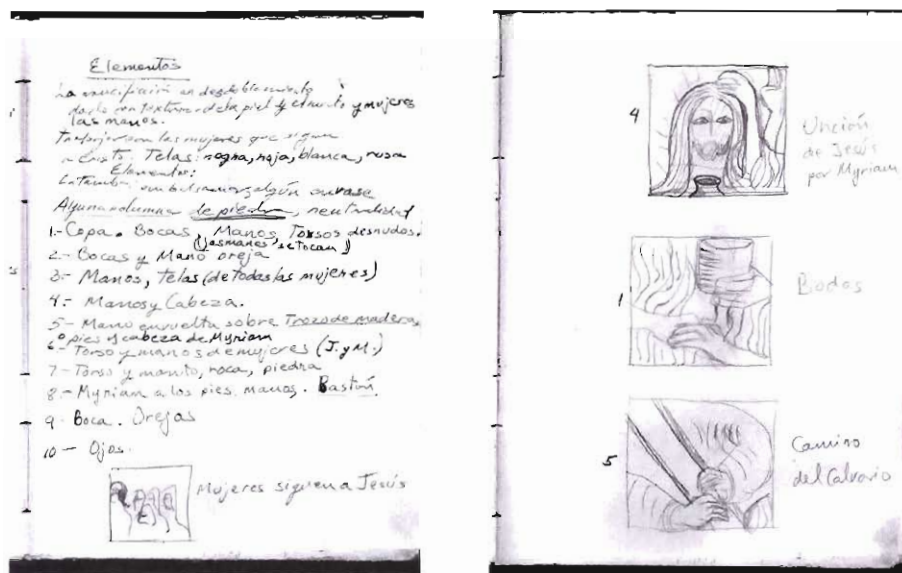 Elementos
La crucifixión un desdoblamiento
con textura de la piel y el manto y mujeres
las manos.
Trabajar con las mujeres que siguen
a Cristo. Telas: negra, roja, blanca, rosa
Elementos:
La tumba algún envase
Alguna columna de piedra, neutralidad
1.- Copa. Bocas, Manos, Torsos desnudos.
(las manos se tocan)
2.- Bocas y Mano oreja
3.- Manos, telas (de todas las mujeres)
4.- Manos y Cabeza.
5.- Mano envuelta sobre Trozo de madera
o pies y cabeza de Myriam
6.- Torso y manos de mujeres (J. y M.)
7.- Torso y manto, roca, piedra
8.- Myriam a los pies. manos. Bastón
9.- Boca. Orejas
10.- Ojos.
Mujeres siguen a Jesús
4
Unción
de Jesús
por Myriam
1
Bodas
5
Camino
del Calvario